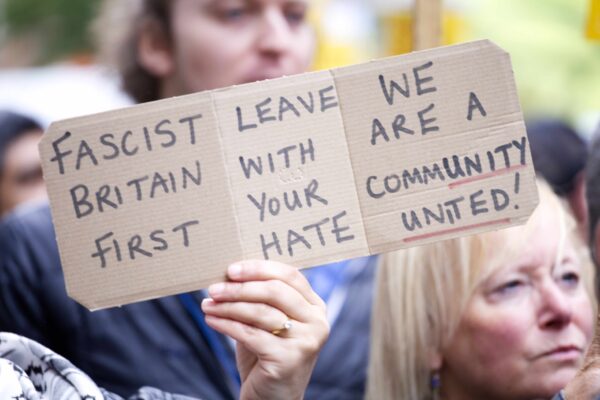 FASCIST
BRITAIN
FIRST
LEAVE
WITH
YOUR
HATE
WE
ARE A
COMMUNITY
UNITED!